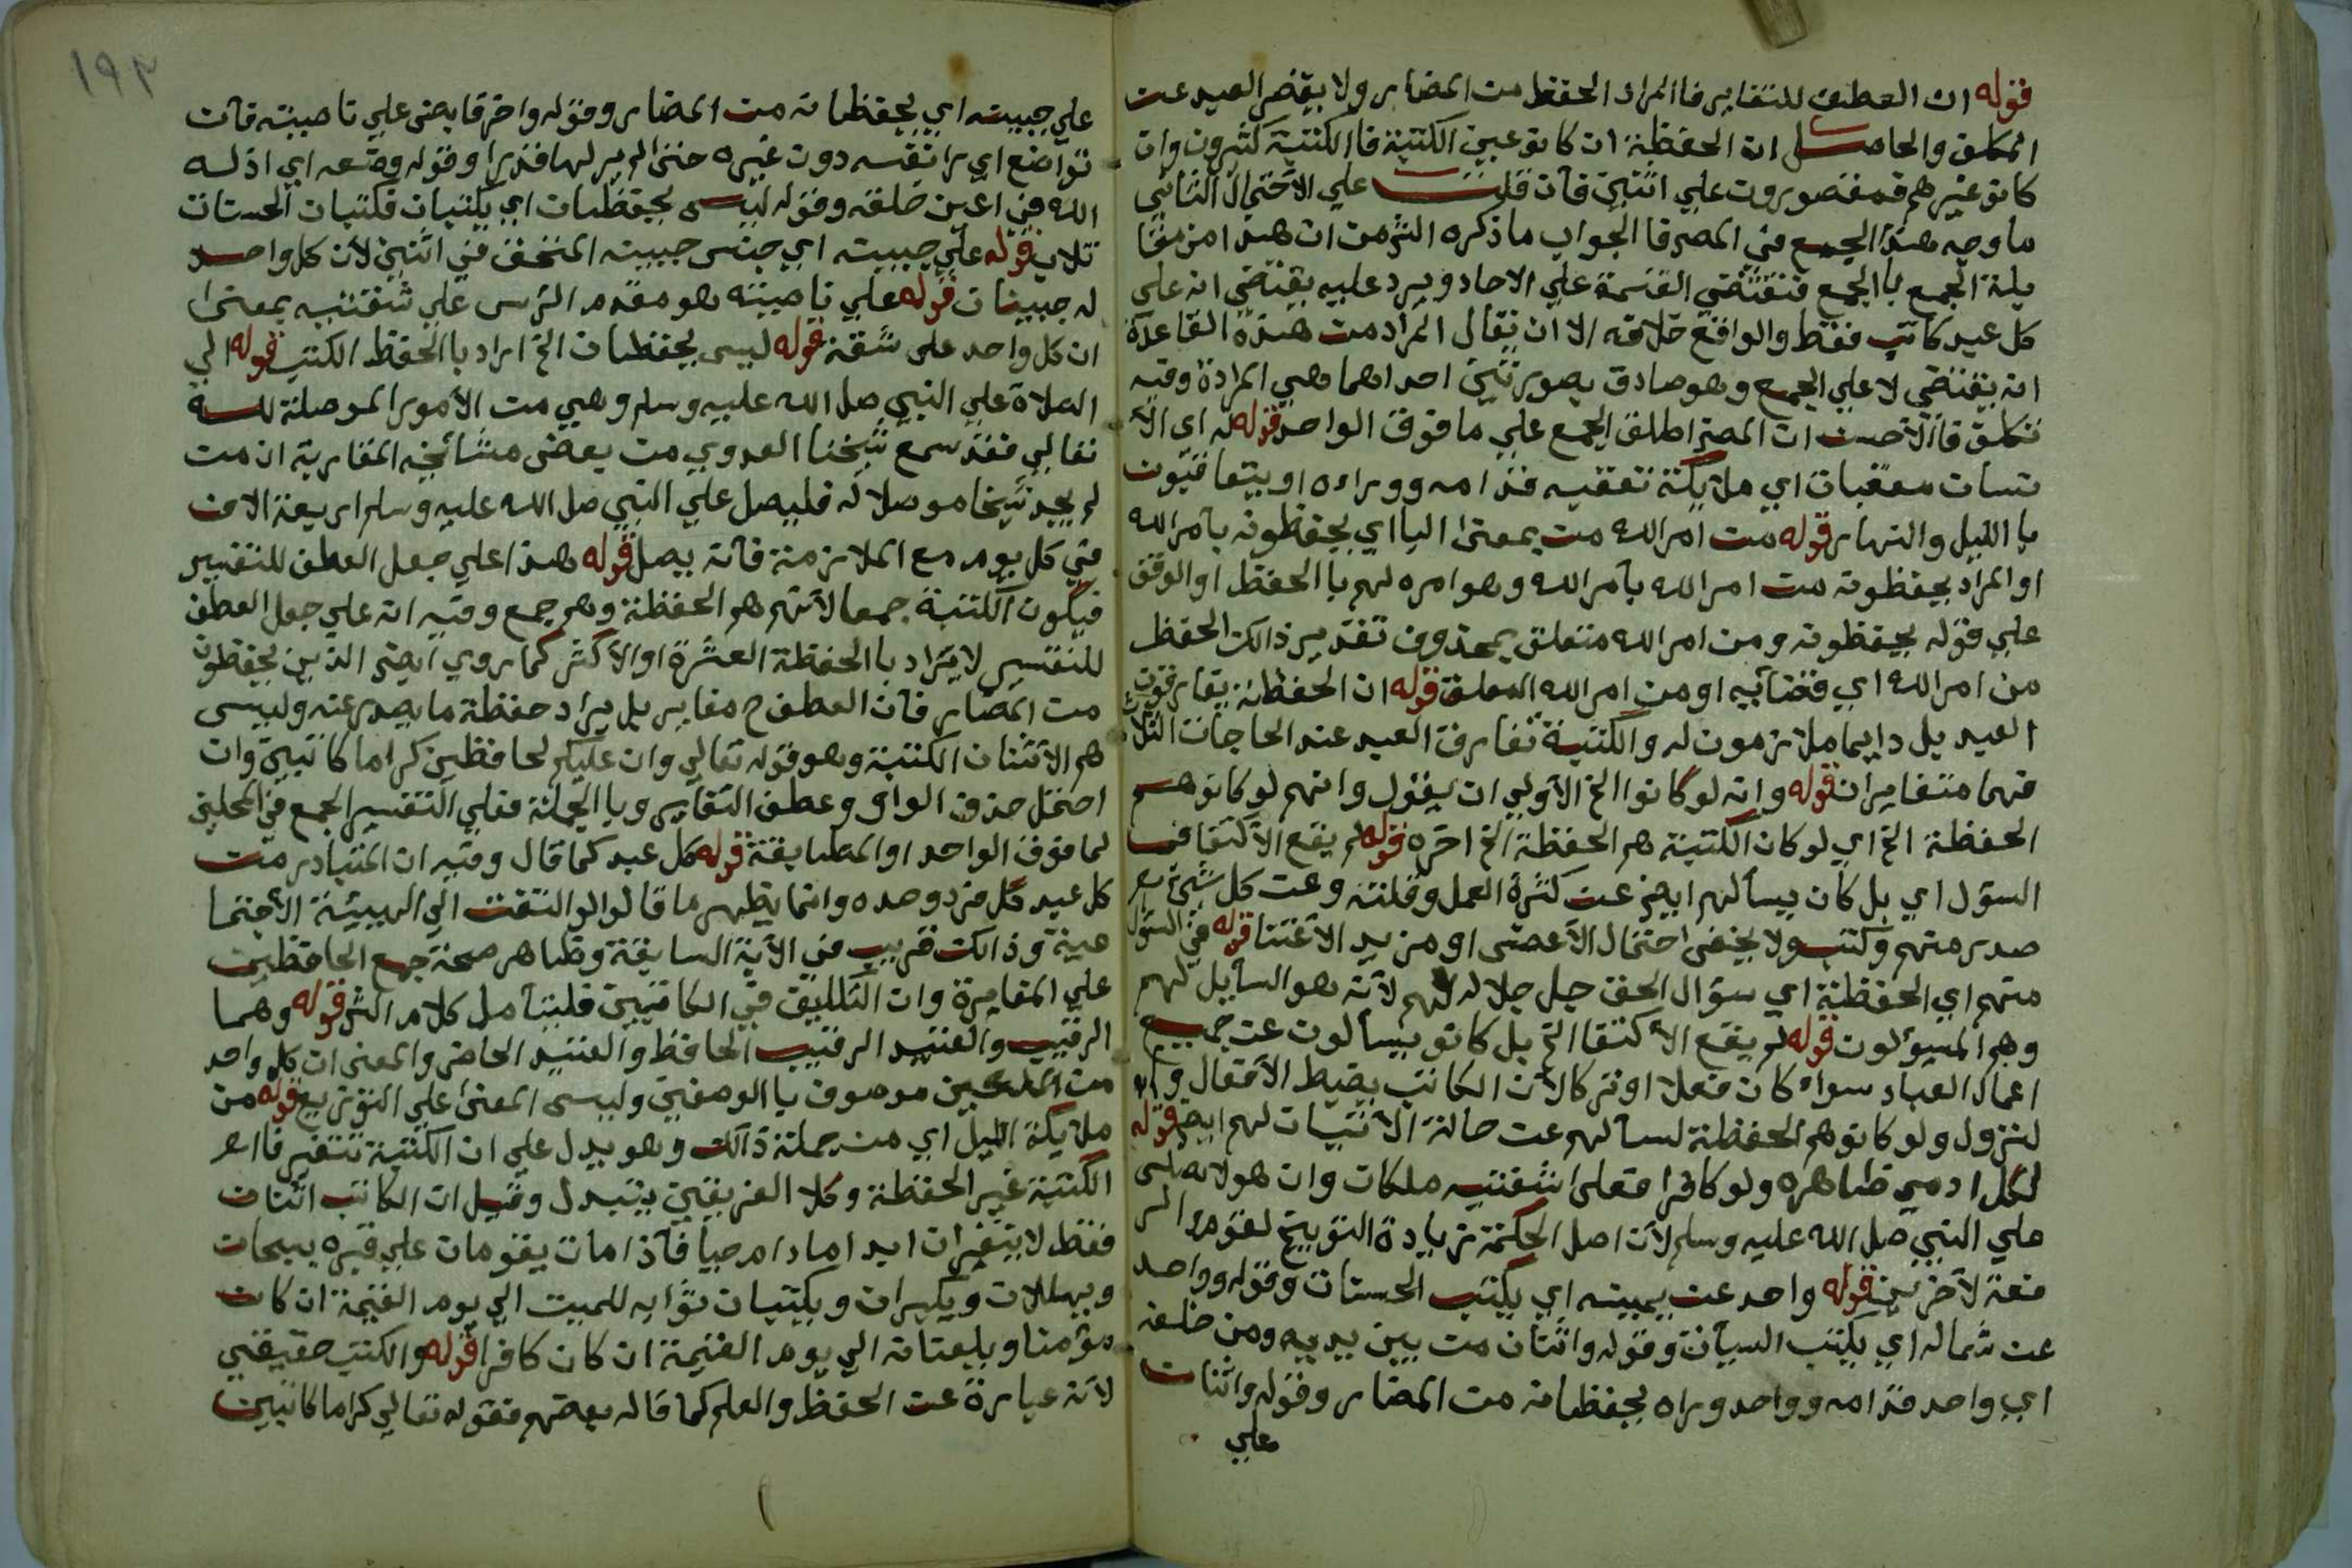 قوله ان العطف للتغاير فاالمراد الحفظ من المضار ولا يقصر العبد عن
المكلف والحاصل ان الحفظة ان كانو عين الكتبة فاالكتبة كثيرون وان
كانو غيرهم فمقصورون علي اثنين فان قلت علي الاحتمال الثاني
ما وجه هذا الجمع في المصر فا الجواب ما ذكره الشرمن ان هذا من مقا
بلة الجمع با الجمع فتقتضي القسمة علي الاحاد ويرد عليه يقتضي انه على
كل عبد كاتب فقط والواقع خلافه الا ان يقال المراد من هذه القاعدة
انه يقتضي لا علي الجمع وهو صادق بصورتين احداهما وهي المرادة وفيه
تكلف فاالاحسن ان المصر اطلق الجمع علي ما فوق الواحد قوله له اي الا
نسان معقبات اي ملايكة تعقبه قدامه ووراءه او يتعاقبون
با الليل والنهار قوله من امر الله من بمعنى البا اي يحفظونه بامر الله
او المراد يحفظونه من امر الله بامر الله وهو امره لهم با الحفظ او الوقف
علي قوله يحفظونه ومن امر الله متعلق بمحذوف تقديره ذالك الحفظ
من امر الله اي قضايه او من امر الله المعلق قوله ان الحفظة يفارقون
العبد بل دايما ملازمون له والكتبة تفارق العبد عند الحاجات الثلاث
فهما متغايران قوله وانه لو كانوا الخ الاولي ان يقول وانهم لو كانو هم
الحفظة الخ اي لو كان الكتبة هم الحفظة الخ اخره قوله لم يقع الاكتفا في
السؤل اي بل كان يسألهم ايض عن كثرة العمل وقلته وعن كل شيء
صدر منهم وكتب ولا يخفى احتمال الاعضى او مزيد الاعتنا قوله في السؤل
منهم اي الحفظة اي سؤال الحق جل جلاله لهم لانه هو السايل لهم
وهم المسئولون قوله لم يقع الاكتفا الخ بل كانو يسألون عن جميع
اعمال العباد سواء كان فعلا او تركا لان الكاتب يضبط الافعال و
لنزول ولو كانو هم الحفظة لسألهم عن حالة الاتيان لهم ايض قوله
لكل ادمي ظاهره ولو كافرا فعلى شفتيه ملكان وان هولا يصلى
علي النبي صل الله عليه وسلم لان اصل الحكمة زيادة التوبيخ لقوم
فعة لاخرين قوله واحد عن يمينه اي يكتب الحسنات وقوله وواحد
عن شماله اي يكتب السيآت وقوله واثنان من بين يديه ومن خلفه
اي واحد قدامه وواحد وراه يحفظانه من المضار وقوله واثنان
علي
١٩٢
علي جبينه اي يحفظانه من المضار وقوله واخر قابض علي ناصيته فان
تواضع اي را نفسه دون غيره حتى لم ير لها قدرا وقوله وضعه اي اذله
الله في اعين خلقه وقوله ليس يحفظان اي يكتبان فكتبان الحسنات
ثلاث قوله علي جبينه اي جنس جبينه المتحقق في اثنين لان كل واحد
له جبينان قوله علي ناصيته هو مقدم الرس علي شفتيه بمعنى
ان كل واحد على شفة قوله ليس يحفظان الخ اراد با الحفظ الكتب قوله الي
الصلاة علي النبي صل الله عليه وسلم وهي من الامور الموصلة لله
تعالي فقد سمع شيخنا العدوي من بعض مشائخه المغاربة ان من
لم يجد شيخا موصلا له فليصل علي النبي صل الله عليه وسلم اربعة الاف
في كل يوم مع الملازمة فانه يصل قوله هذا علي جعل العطف للتفسير
فيكون الكتبة جمعا لانهم هم الحفظة وهم جمع وفيه انه علي جعل العطف
للتفسير لا يراد با الحفظة العشرة او الاكثر كما روي ايضى الذين يحفظون
من المضار فان العطف ح مغاير بل يراد حفظة ما يصدر عنه وليس
هم الا اثنان الكتبة وهو قوله تعالي وان عليكم لحافظين كراما كاتبين وان
احتمل حذف الواو وعطف التغاير وبا الجملة فعلي التفسير الجمع في المحلين
لما فوق الواحد او المطابقة قوله كل عبد كما قال وفيه ان المتبادر من
كل عبد كل فرد وحده وانما يظهر ما قالو لو التفت الي الهيئة الاجتما
عية وذالك قريب في الاية السابقة وظاهر صحة جمع الحافظين
علي المغايرة وان التلفيق في الكاتبين فليتامل كلام الشر قوله وهما
الرقيب والعتيد الرقيب الحافظ والعتيد الحاضر والمعنى ان كل واحد
من الملكين موصوف با الوصفين وليس المعنى علي التوزيع قوله من
ملايكة الليل اي من جملة ذالك وهو يدل علي ان الكتبة تتغير فا
الكتبة غير الحفظة وكلا الفريقين يتبدل وقيل ان الكاتب اثنان
فقط لا يتغيران ابدا مادام حيا فاذا مات يقومان علي قبره يسبحان
ويهللان ويكبران ويكتبان ثوابه للميت الي يوم القيمة ان كان
مؤمنا ويلعنانه الي يوم القيمة ان كان كافرا قوله والكتب حقيقي
لانه عبارة عن الحفظ والعلم كما قاله بعضهم فقوله تعالي كراما كاتبين